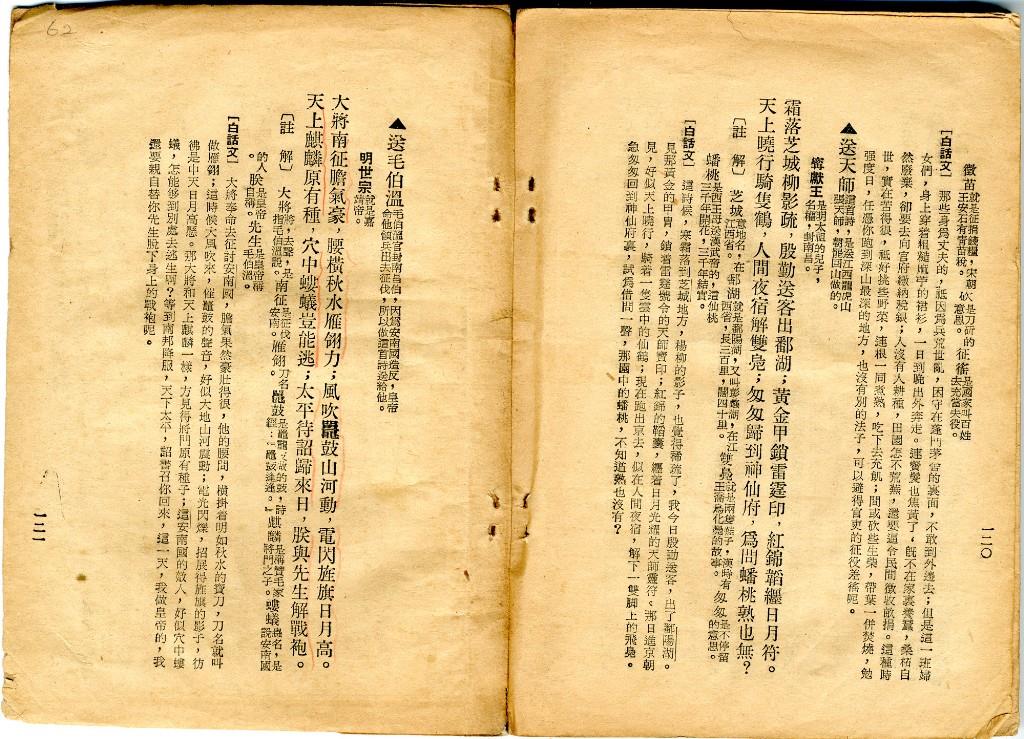 徵苗就是征捐錢糧，宋朝王安石有青苗稅。砍是刀斫的意思。征徭是國家叫百姓去充當夫役。
【白話文】那些身爲丈夫的，祗因爲兵荒世亂，困守在蓬門茅舍的裏面，不敢到外邊去；但是這一班婦
女們，身上穿着粗糙麻苧的裙衫，一日到晚出外奔走。連鬢髮也焦黃了，旣不在家裏養蠶，桑柘自
然廢棄，卻要去向官府繳納稅銀；人沒有人耕種，田園怎不荒蕪，還要逼令民間徵收畝捐。這種時
世，實在苦得很，祗好挑些野菜，連根一同煮熟，吃下去充飢；間或砍些生柴，帶葉一併焚燒，勉
強度日，任憑你跑到深山最深的地方，也沒有別的法子，可以避得官吏的征役差徭呢。
▲送天師讀言詩，是送江西龍虎山張天師，朝罷回山做的。
寧獻王是明太祖的兒子，名權，封南昌。
霜落芝城柳影疏，殷勤送客出鄱湖；黃金甲鎖雷霆印，紅錦韜纒日月符。
天上曉行騎隻鶴，人間夜宿解雙鳧；匆匆歸到神仙府，爲問蟠桃熟也無？
〔註　解〕芝城地名，在江西省。鄱湖就是鄱陽湖，又叫彭蠡湖，在江西省，長三百里，闊四十里。雙鳧就是兩隻燕子，漢時有王喬鳧化舄的故事。匆匆是不停留的意思。
蟠桃是西王母送漢武帝的，這仙桃三千年開花，三千年結實。
【白話文】這時候，寒霜落到芝城地方，楊柳的影子，也覺得稀疏了，我今日殷勤送客，出了鄱陽湖。
見那黃金的甲胄，鎖着雷霆號令的天師寶印；紅錦的韜囊，纒着日月光耀的天師靈符。那日進京朝
見，好似天上曉行，騎着一隻雲中的仙鶴；現在跑出京去，似在人間夜宿，解下一雙脚上的飛鳧。
急匆匆回到神仙府裏，試爲借問一聲，那園中的蟠桃，不知道熟也沒有？
一二〇
▲送毛伯溫毛伯溫官封南昌伯，因爲安南國造反，皇帝命他領兵出去征伐，所以做這首詩送給他。
明世宗就是嘉靖帝。
大將南征膽氣豪，腰橫秋水雁翎刀；風吹鼉鼓山河動，電閃旌旗日月高。
天上麒麟原有種，穴中螻蟻豈能逃；太平待詔歸來日，朕與先生解戰袍。
〔註　解〕大將將，去聲，是指毛伯溫說。南征是征伐安南。雁翎刀名。鼉鼓是鼉龍皮做的鼓，詩經：『鼉鼓逢逢。』麒麟是稱贊毛家將門之子。螻蟻蟲名，是說安南國
的人。朕是皇帝自稱。先生是皇帝稱毛伯溫。
【白話文】大將奉命去征討安南國，膽氣果然豪壯得很，他的腰間，橫掛着明如秋水的寶刀，刀名就叫
做雁翎；這時候大風吹來，催鼉鼓的聲音，好似大地山河震動；電光閃爍，招展得旌旗的影子，彷
彿是中天日月高懸。那大將和天上麒麟一樣，方見得將門原有種子；這安南國的敵人，好似穴中螻
蟻，怎能够到別處去逃生啊？等到南邦降服，天下太平，詔書召你回來，這一天，我做皇帝的，我
還要親自替你先生脫下身上的戰袍呢。
一二一
62